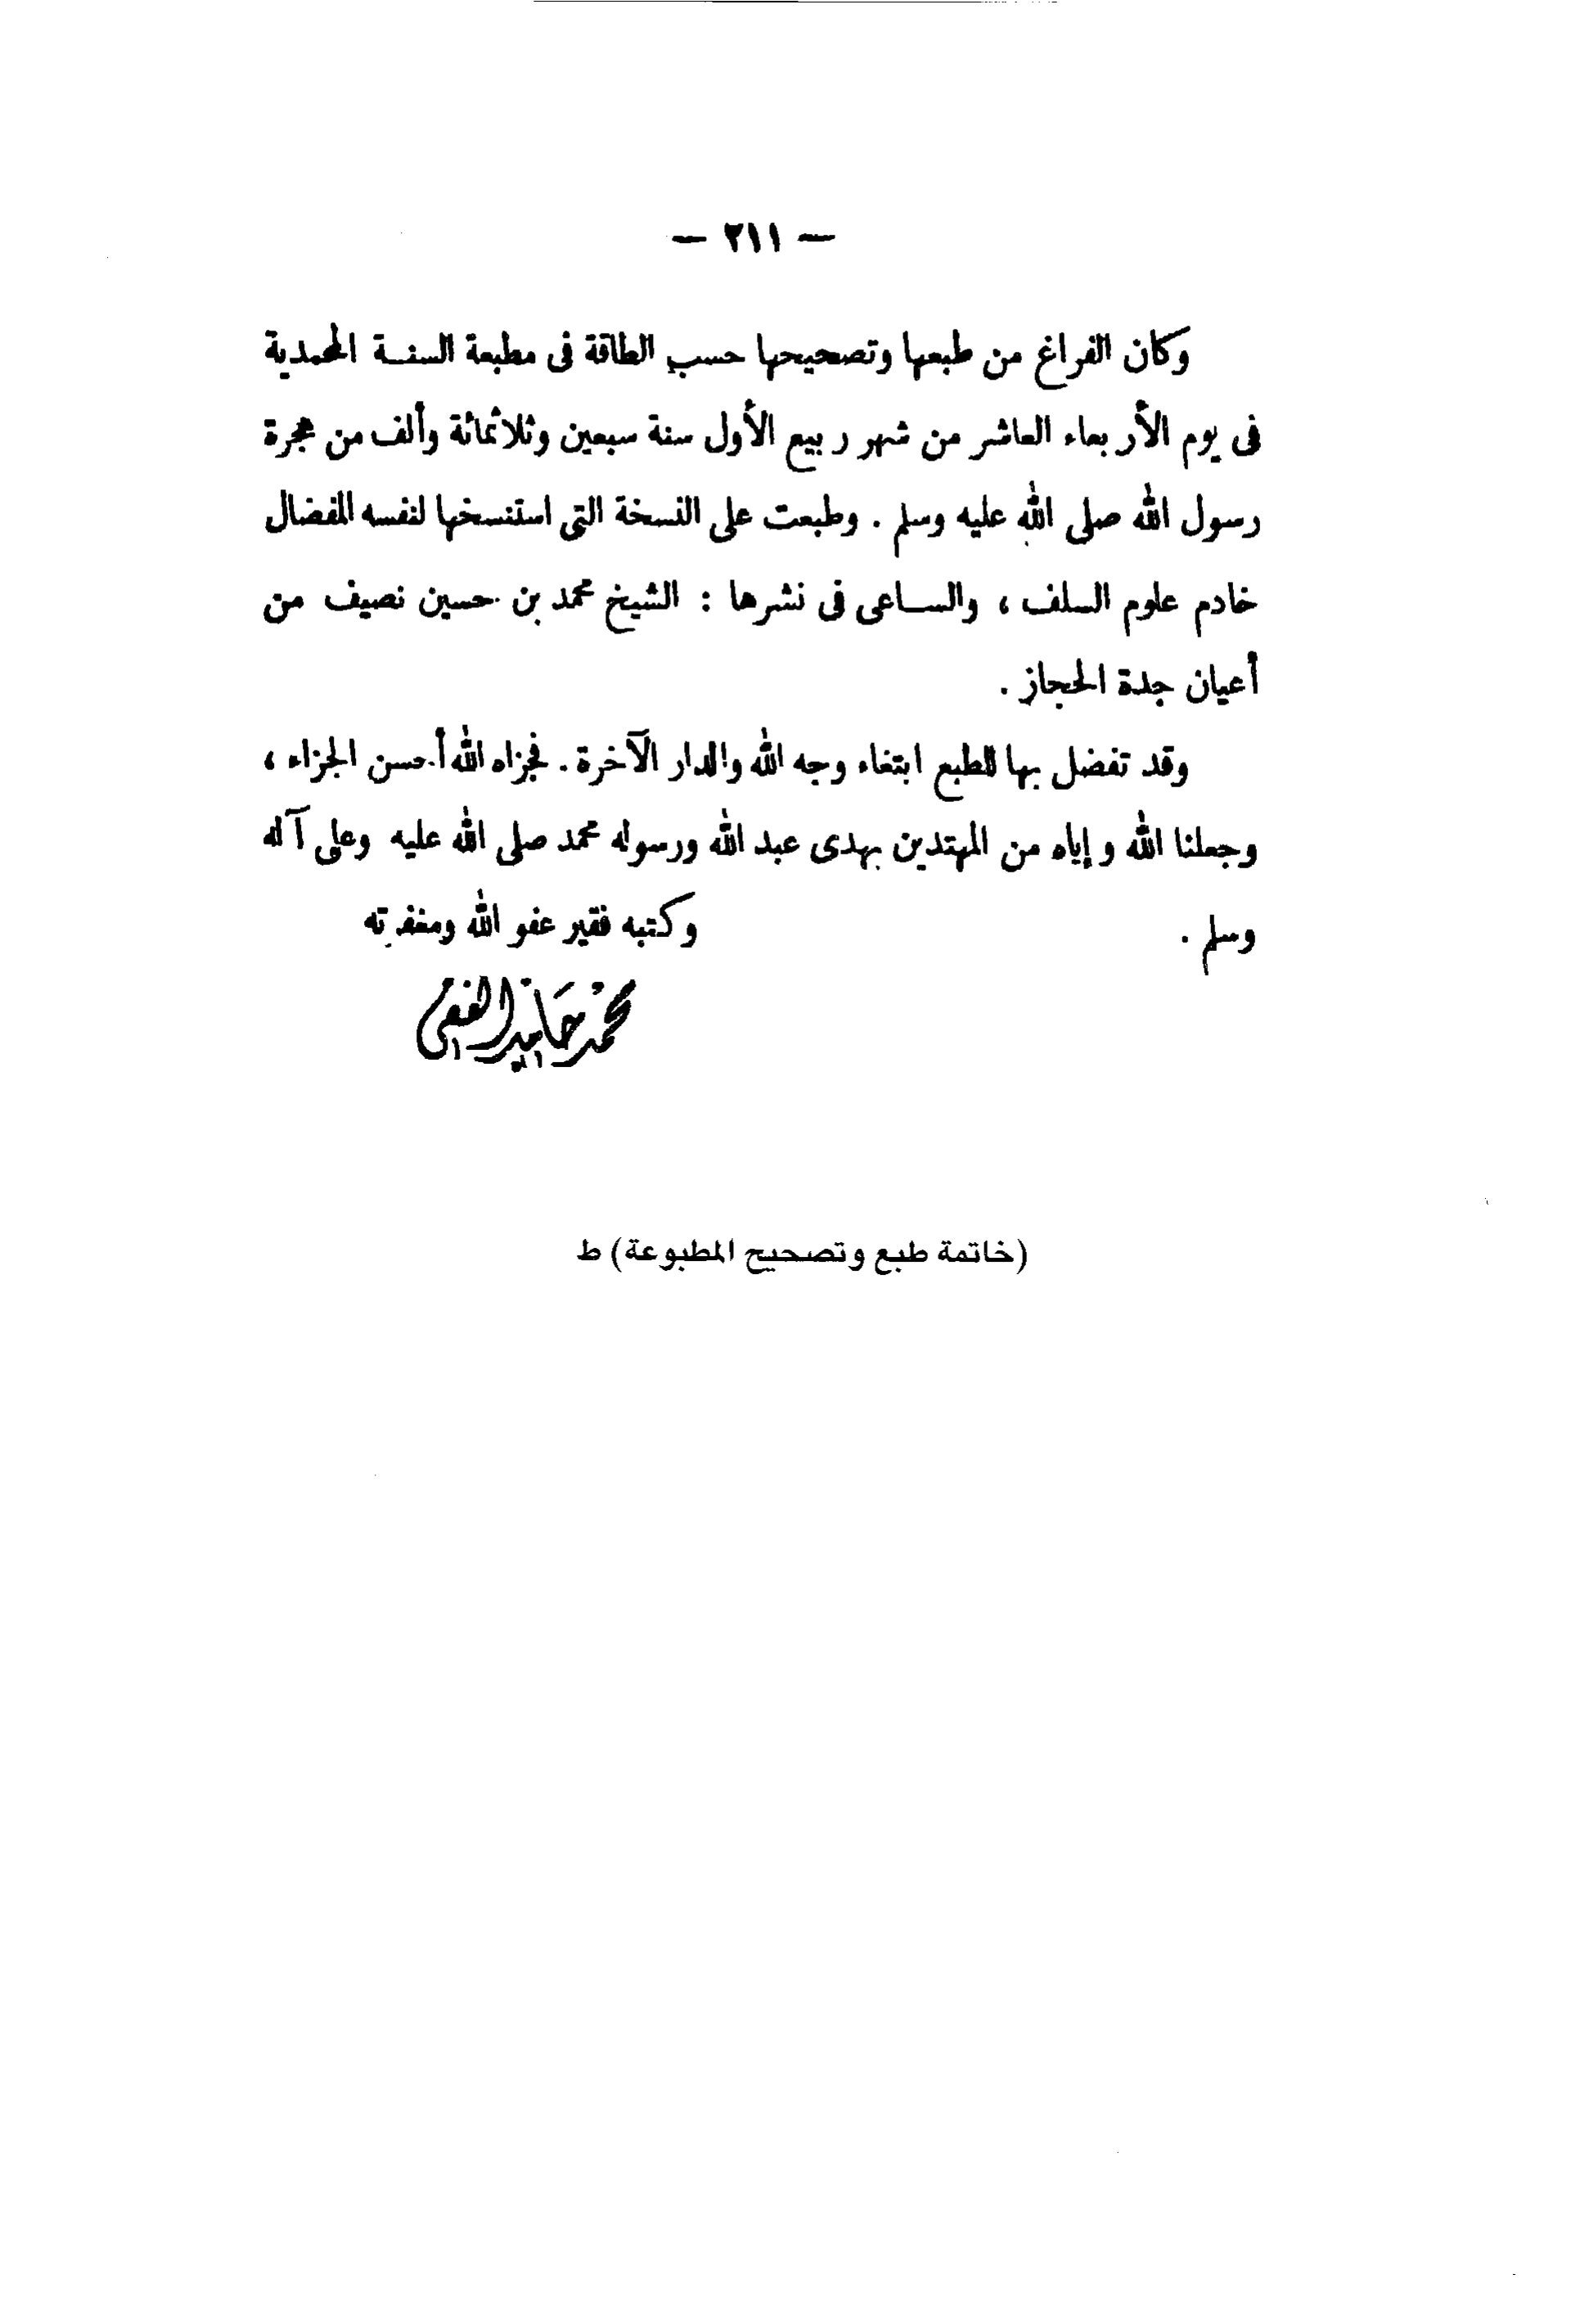 — ٢١١ —
وكان الفراغ من طبعها وتصحيحها حسب الطاقة فى مطبعة السنة المحمدية
فى يوم الأربعاء العاشر من شهر ربيع الأول سنة سبعين وثلاثمائة وألف من هجرة
رسول الله صلى الله عليه وسلم . وطبعت على النسخة التى استنسخها لنفسه المفضال
خادم علوم السلف ، والساعى فى نشرها : الشيخ محمد بن حسين نصيف من
أعيان جدة الحجاز .
وقد تفضل بها للطبع ابتغاء وجه الله والدار الآخرة . فجزاه الله أحسن الجزاء ،
وجعلنا الله وإياه من المهتدين بهدى عبد الله ورسوله محمد صلى الله عليه وعلى آله
وسلم .
وكتبه فقير عفو الله ومغفرته
محمد حامد الفقى
(خاتمة طبع وتصحيح المطبوعة) ط